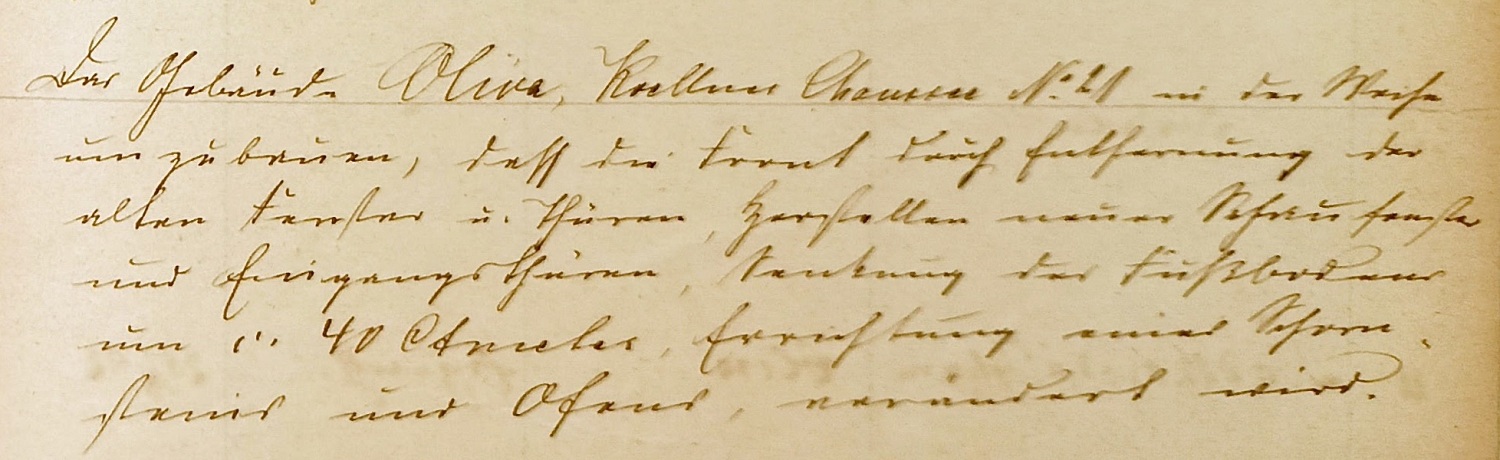 Das Gebäude Oliva, Koellner Chaussee No. 21 in der Weise
umzubauen, dass die Front durch Entfernung der
alten Fenster u. Thüren, Herstellen neuer Schaufenster
und Eingangsthüren, Senkung des Fußbodens
um c. 40 Ctmeter, Errichtung eines Schorn-
steins und Ofens, verändert wird.